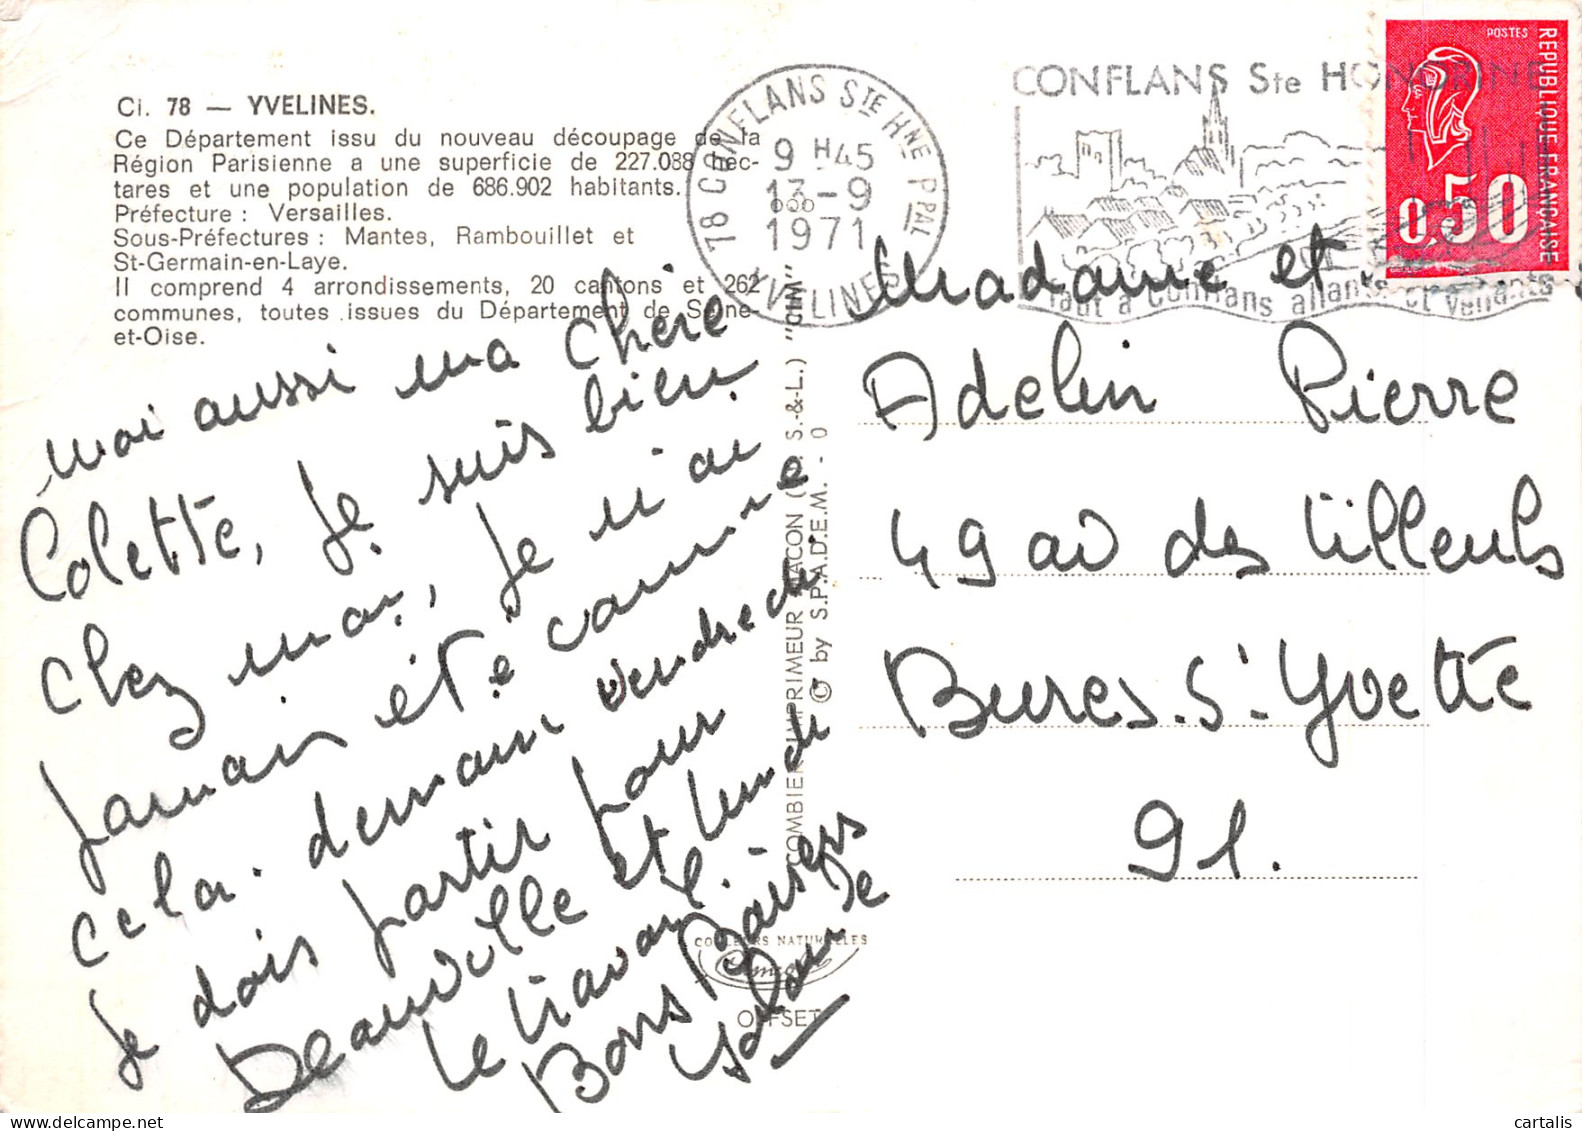 Ci. 78 — YVELINES.
Ce Département issu du nouveau découpage de la
Région Parisienne a une superficie de 227.088 hec-
tares et une population de 686.902 habitants.
Préfecture : Versailles.
Sous-Préfectures : Mantes, Rambouillet et
St-Germain-en-Laye.
Il comprend 4 arrondissements, 20 cantons et 262
communes, toutes issues du Département de Seine-
et-Oise.
moi aussi ma chère
Colette, je suis bien
chez moi, je n'ai
jamais été comme
cela. demain vendredi
je dois partir pour
Deauville et lundi
le travail.
Bons Baisers
78 CONFLANS STE HNE PPAL
9 H 45
13-9
1971
YVELINES
CONFLANS Ste HONORINE
faut à Conflans allants et venants
POSTES
REPUBLIQUE FRANÇAISE
0,50
COMBIER IMPRIMEUR MACON (S.-&-L.) "CIM"
© by S.P.A.D.E.M. - 0
COULEURS NATURELLES
OFFSET
Madame et
Adelin Pierre
49 av des tilleuls
Bures. S. Yvette
91.
cartalis